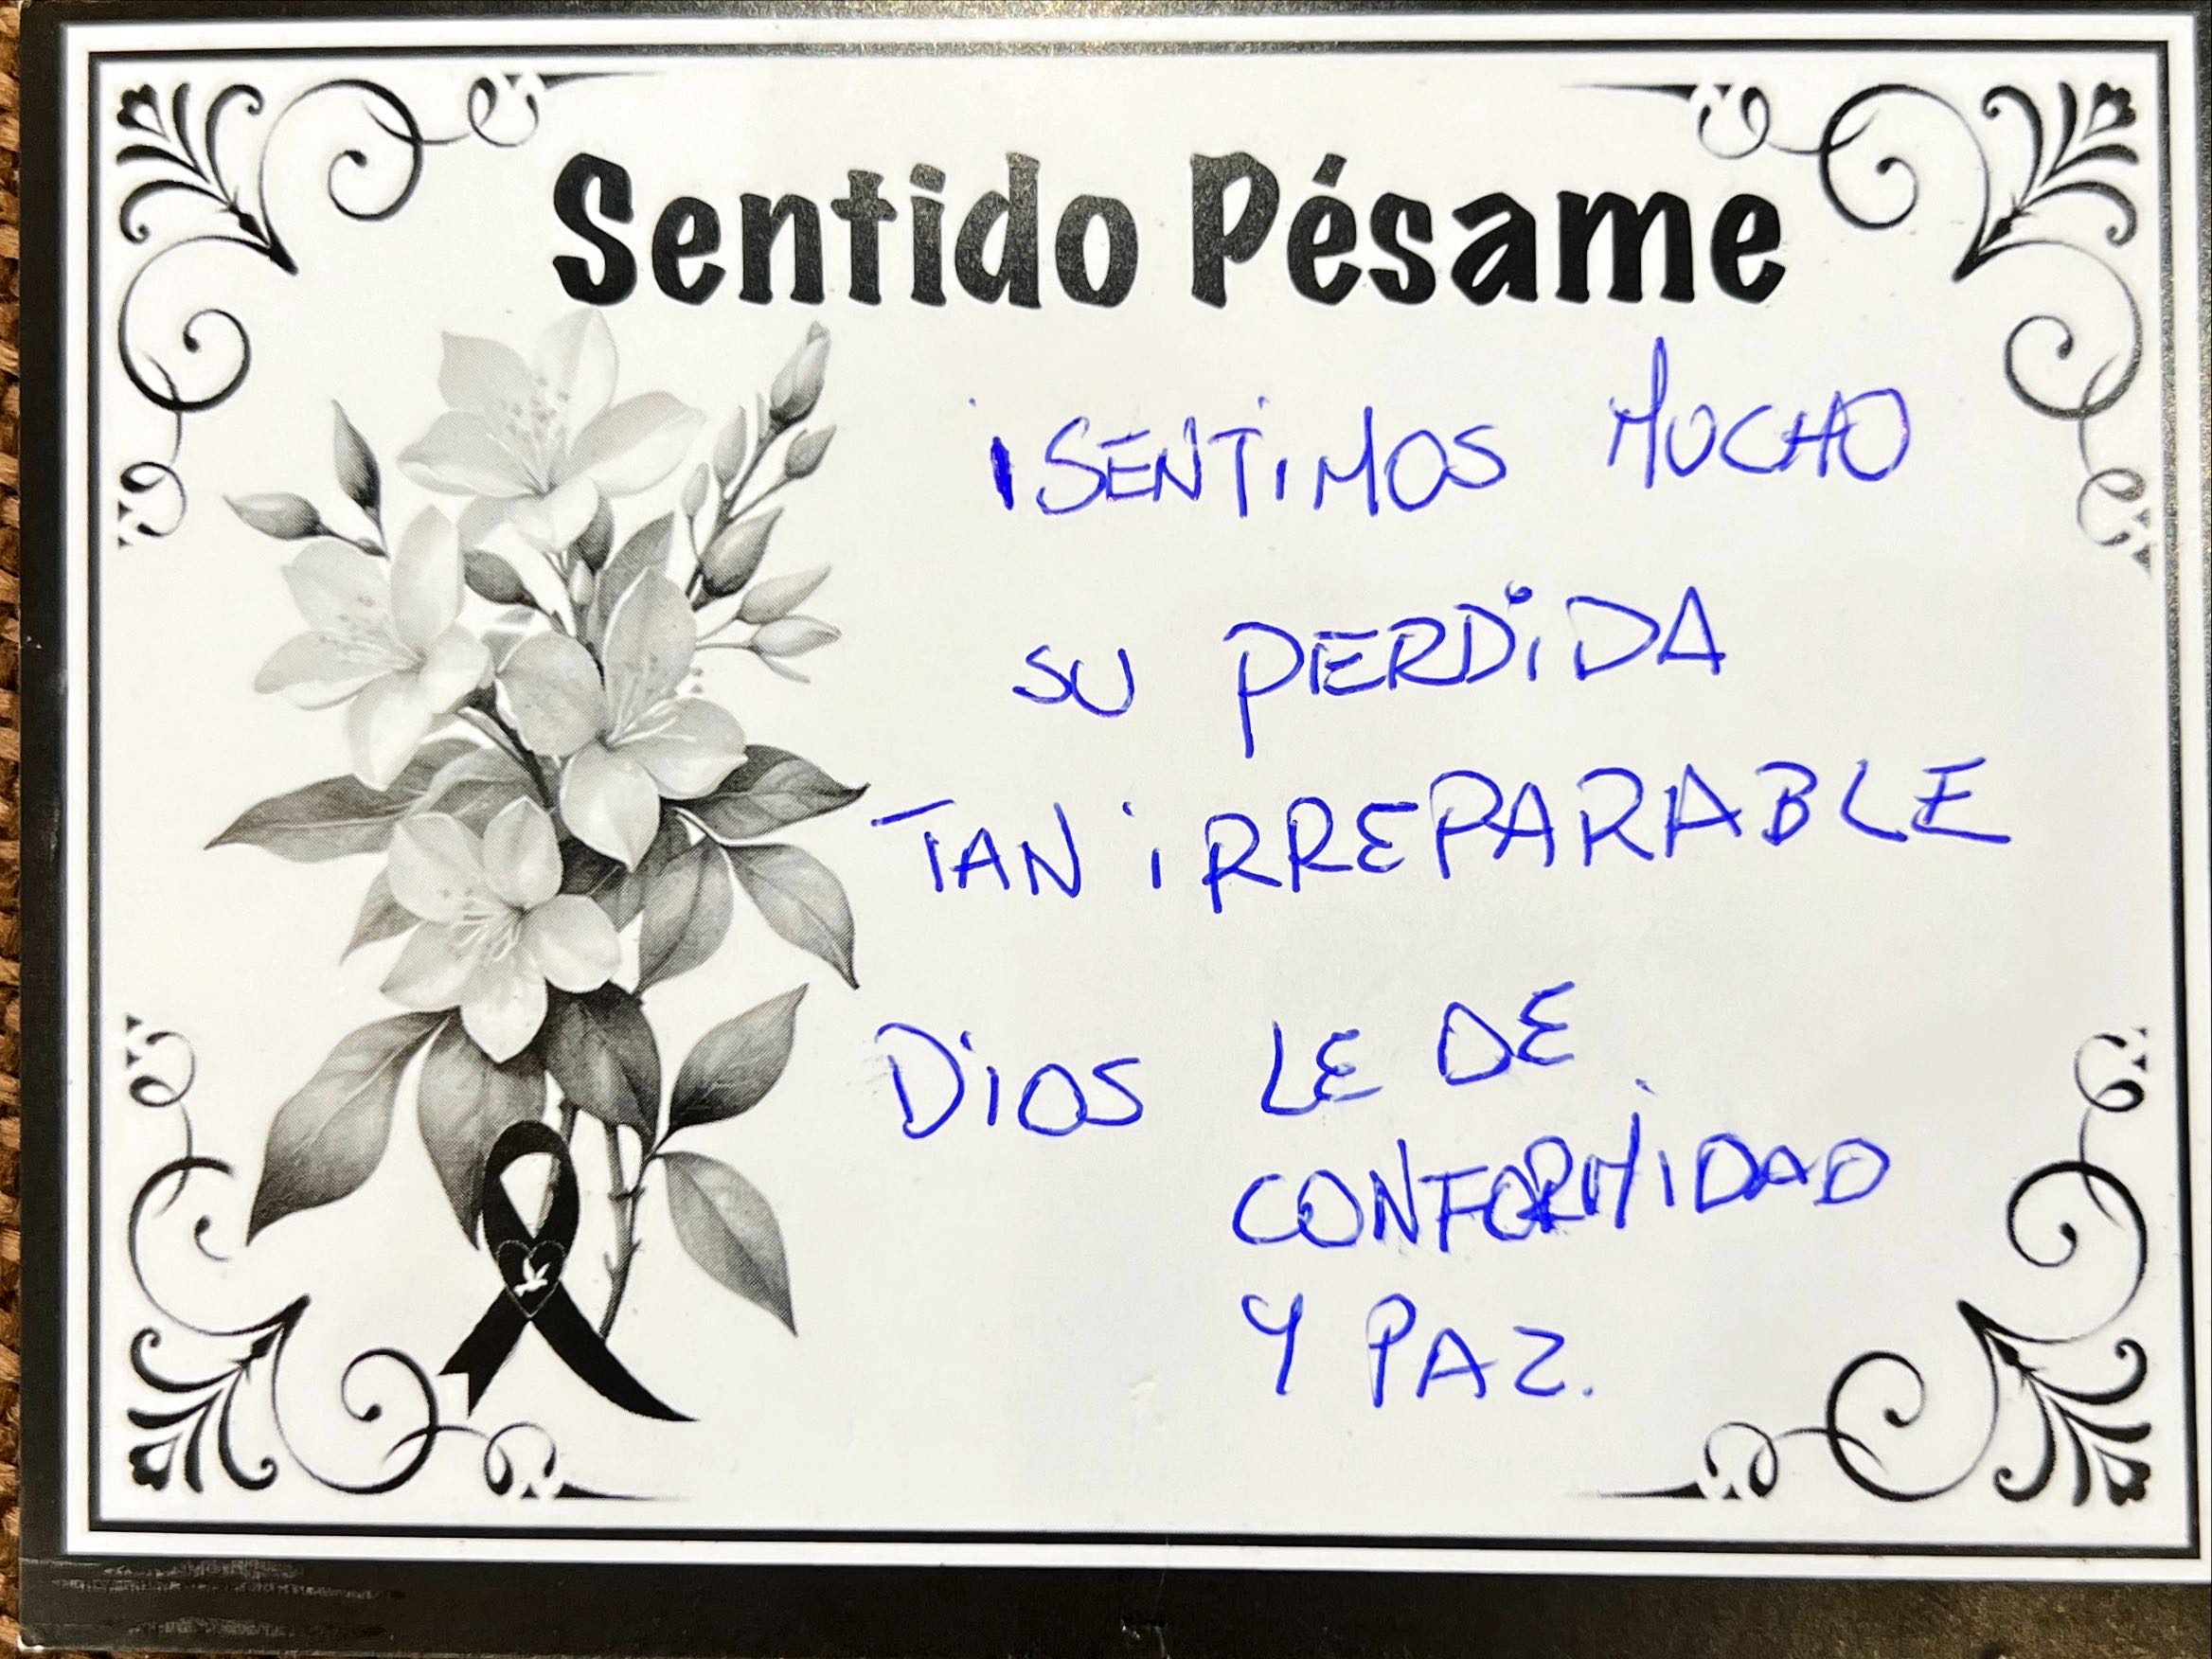 Sentido Pésame
¡SENTIMOS MUCHO
SU PERDIDA
TAN IRREPARABLE
DIOS LE DE
CONFORMIDAD
Y PAZ.